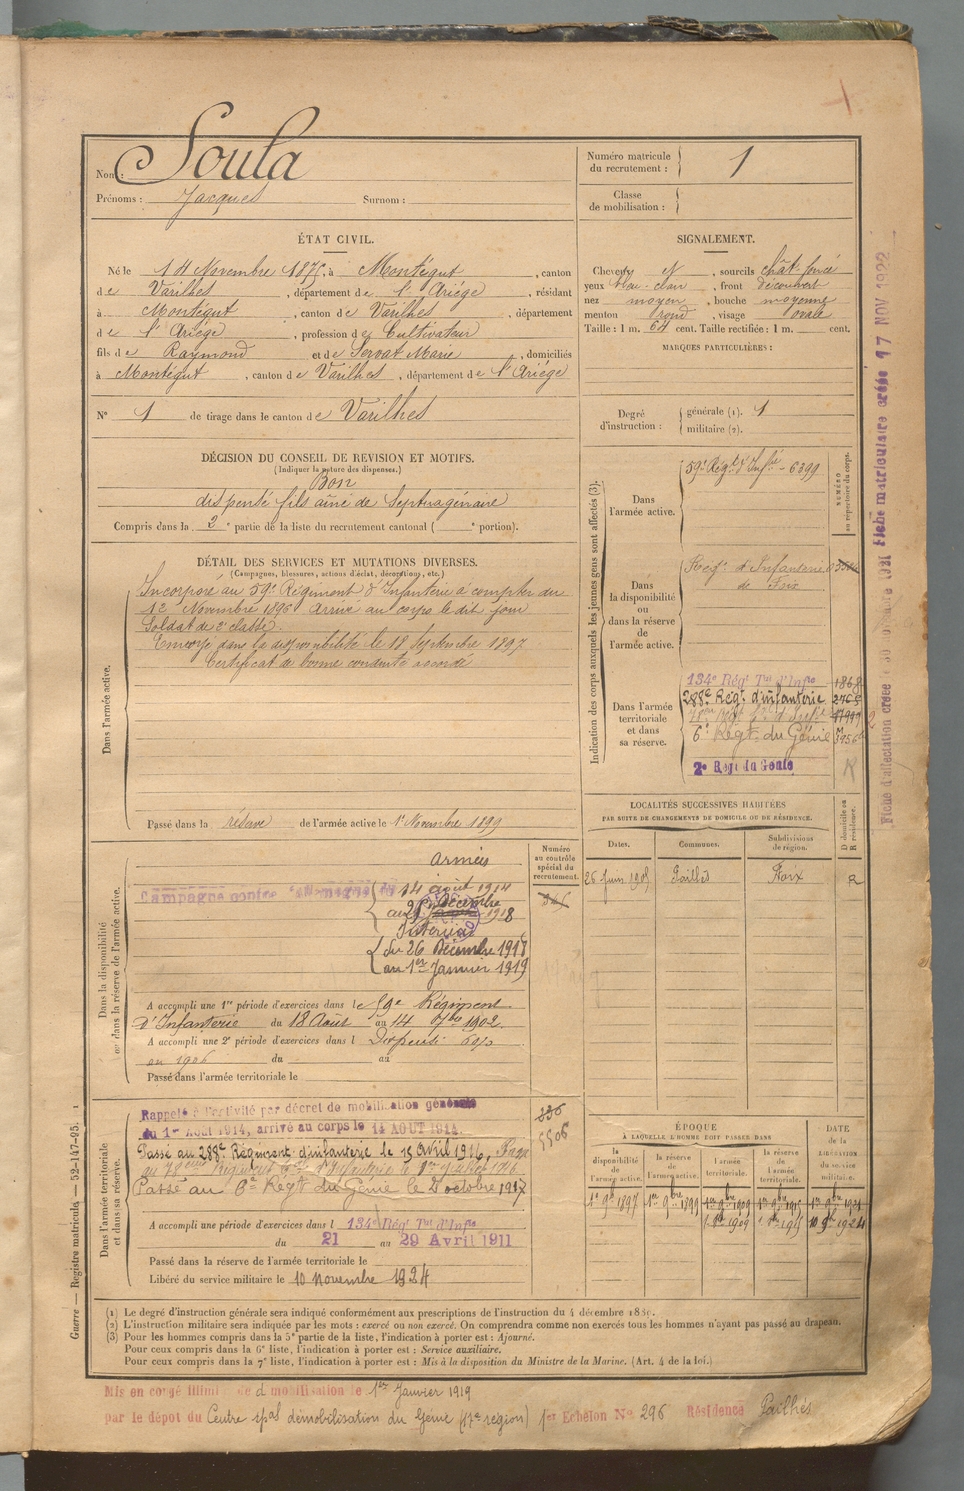 Nom : Soula
Prénoms : Jacques Surnom :
Numéro matricule du recrutement : 1
Classe de mobilisation :
ÉTAT CIVIL.
Né le 14 Novembre 1875, à Montégut, canton
de Varilhes, département de l'Ariége, résidant
à Montégut, canton de Varilhes, département
de l'Ariége, profession de Cultivateur
fils de Raymond et de Servat Marie, domiciliés
à Montégut, canton de Varilhes, département de l'Ariège
N° 1 de tirage dans le canton de Varilhes
SIGNALEMENT.
Cheveux N, sourcils chât. foncé
yeux clair, front découvert
nez moyen, bouche moyenne
menton rond, visage ovale
Taille : 1 m. 64 cent. Taille rectifiée : 1 m. cent.
MARQUES PARTICULIÈRES :
Degré d'instruction : générale (1). 1
militaire (2).
DÉCISION DU CONSEIL DE REVISION ET MOTIFS.
(Indiquer la nature des dispenses.)
Bon
dispensé fils aîné de Septuagénaire
Compris dans la 2e partie de la liste du recrutement cantonal ( e portion).
DÉTAIL DES SERVICES ET MUTATIONS DIVERSES.
(Campagnes, blessures, actions d'éclat, décorations, etc.)
Dans l'armée active.
Incorporé au 59e Régiment d'Infanterie à compter du
Novembre 1896 arrivé au corps le dit jour
Soldat de 2e classe.
Envoyé dans la disponibilité le 18 Septembre 1897
Certificat de bonne conduite accordé
Passé dans la réserve de l'armée active le 1er Novembre 1899
Indication des corps auxquels les jeunes gens sont affectés (3).
NUMÉRO au répertoire du corps.
Dans l'armée active.
59e Régt d'Infie 6399
Dans la disponibilité ou dans la réserve de l'armée active.
Régt d'Infanterie
de Foix
Dans l'armée territoriale et dans sa réserve.
134e Régt Tal d'Infie 1868
288e Régt d'infanterie
6e Régt du Génie
2e Régt du Génie
R
LOCALITÉS SUCCESSIVES HABITÉES
PAR SUITE DE CHANGEMENTS DE DOMICILE OU DE RÉSIDENCE.
D domicile ou R résidence.
Dates. Communes. Subdivisions de région.
26 juin Pailhès Foix R
Dans la disponibilité ou dans la réserve de l'armée active.
Numéro au contrôle spécial du recrutement.
346
Armées
Campagne contre l'Allemagne du 14 août 1914
au Décembre 1918
Intérieur
du 26 Décembre 1918
au 1er Janvier 1919
A accompli une 1re période d'exercices dans le 59e Régiment
d'Infanterie du 18 Août au 14 7bre 1902.
A accompli une 2e période d'exercices dans l Dispensé
en 1906 du au
Passé dans l'armée territoriale le
Dans l'armée territoriale et dans sa réserve.
Rappelé à l'activité par décret de mobilisation générale
du 1er Août 1914, arrivé au corps le 14 AOUT 1914.
Passé au 288e Régiment d'infanterie le 15 avril 1916, Passé
Passé au 6e Régt du Génie le 2 octobre 1917
A accompli une période d'exercices dans l 134e Régt Tal d'Infie
du 21 au 29 Avril 1911
Passé dans la réserve de l'armée territoriale le
Libéré du service militaire le 10 novembre 1924
ÉPOQUE
À LAQUELLE L'HOMME DOIT PASSER DANS
la disponibilité de l'armée active.
la réserve de l'armée active.
l'armée territoriale.
la réserve de l'armée territoriale.
DATE de la LIBÉRATION du service militaire.
1er 9bre 1897 1er 9bre 1899 1er 9bre 1909 1er 9bre 1915 1er 9bre 1921
10 9bre 1924
(1) Le degré d'instruction générale sera indiqué conformément aux prescriptions de l'instruction du 4 décembre
(2) L'instruction militaire sera indiquée par les mots : exercé ou non exercé. On comprendra comme non exercés tous les hommes n'ayant pas passé au drapeau.
(3) Pour les hommes compris dans la 5e partie de la liste, l'indication à porter est : Ajourné.
Pour ceux compris dans la 6e liste, l'indication à porter est : Service auxiliaire.
Pour ceux compris dans la 7e liste, l'indication à porter est : Mis à la disposition du Ministre de la Marine. (Art. 4 de la loi.)
Mis en congé illimité de démobilisation le 1er Janvier 1919
par le dépôt du Centre spal démobilisation du Génie (17e région) 1er Echelon No 296 Résidence Pailhès
Guerre — Registre matricule — 52-147-95.
Fiche matriculaire créée 17 NOV 1922
Fiche d'affectation créée